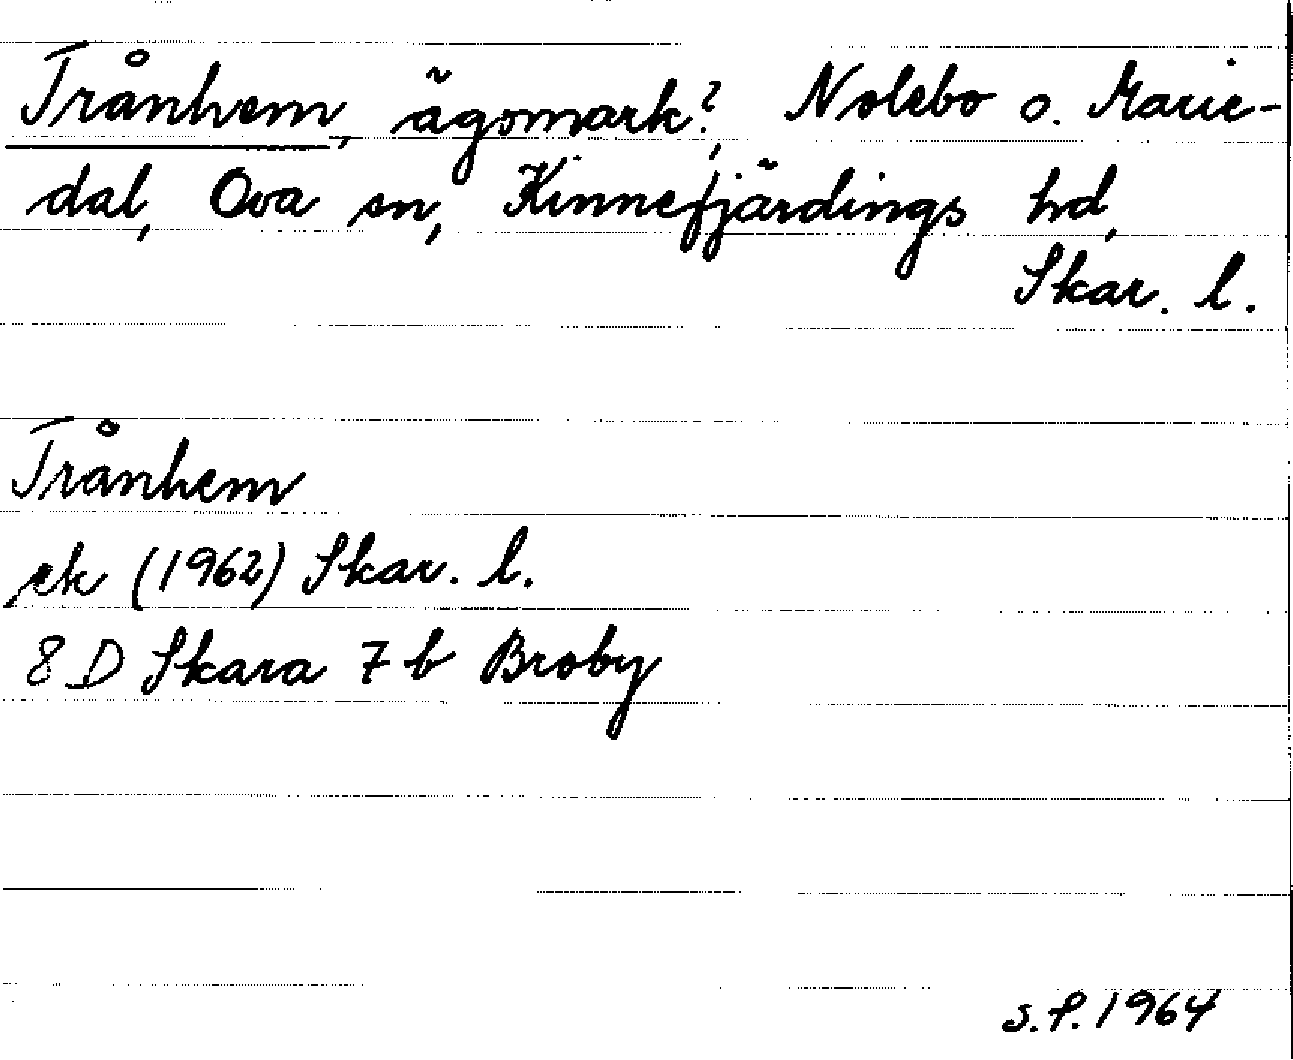 Trånhem, ägomark?, Nolebo o. Marie-
dal, Ova sn, Kinnefjärdings hd,
Skar. l.
Trånhem
ek (1962) Skar. l.
8 D Skara 7 b Broby
S.P. 1964